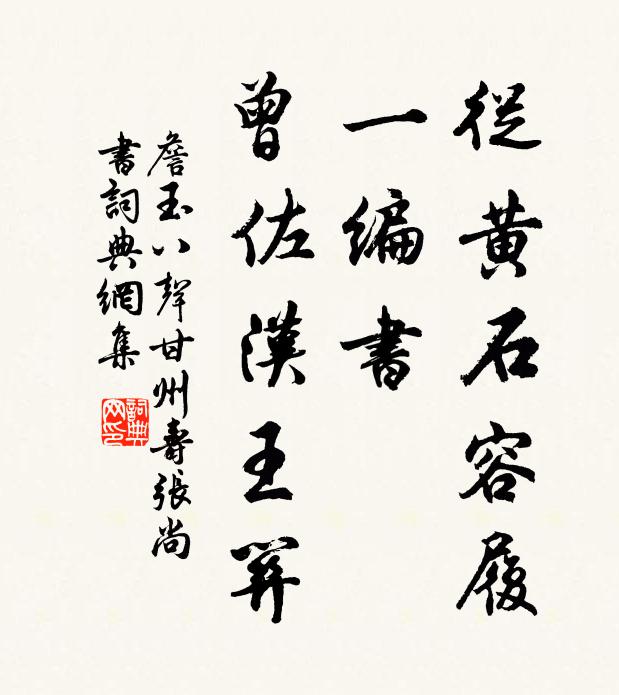 從黃石容履
一編書
曾佐漢王
詹玉八聲甘州壽張尚
書詞典網集
詞典
网印